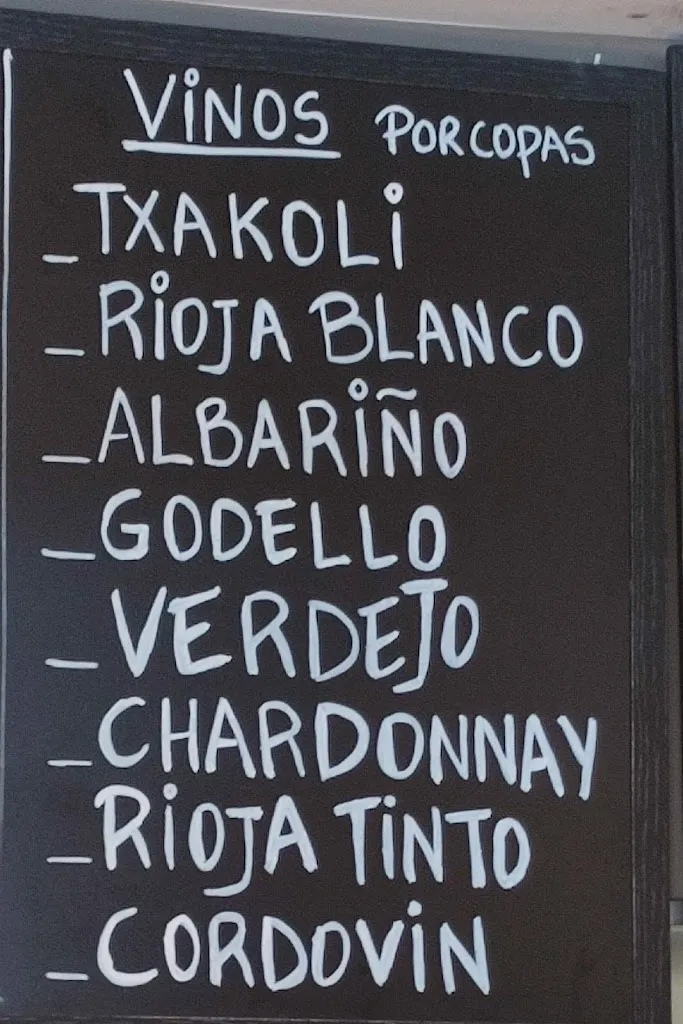 VINOS POR COPAS
_TXAKOLI
_RIOJA BLANCO
_ALBARIÑO
_GODELLO
_VERDEJO
_CHARDONNAY
_RIOJA TINTO
_CORDOVIN